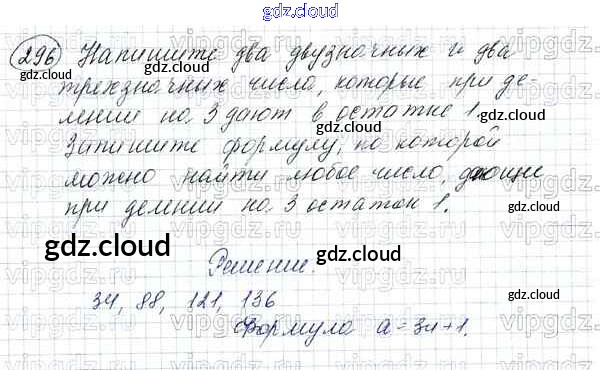 gdz.cloud
296 Напишите два двузначных и два
трехзначных число, которые при де-
лении на 3 дают в остатке 1.
gdz.cloud
gdz.cloud
Запишите формулу, по которой
можно найти любое число, дающие
при делении на 3 остаток 1.
gdz.cloud
gdz.cloud
Решение.
gdz.cloud
34, 88, 121, 136
gdz.cloud
gdz.cloud
Формула a = 3n + 1.